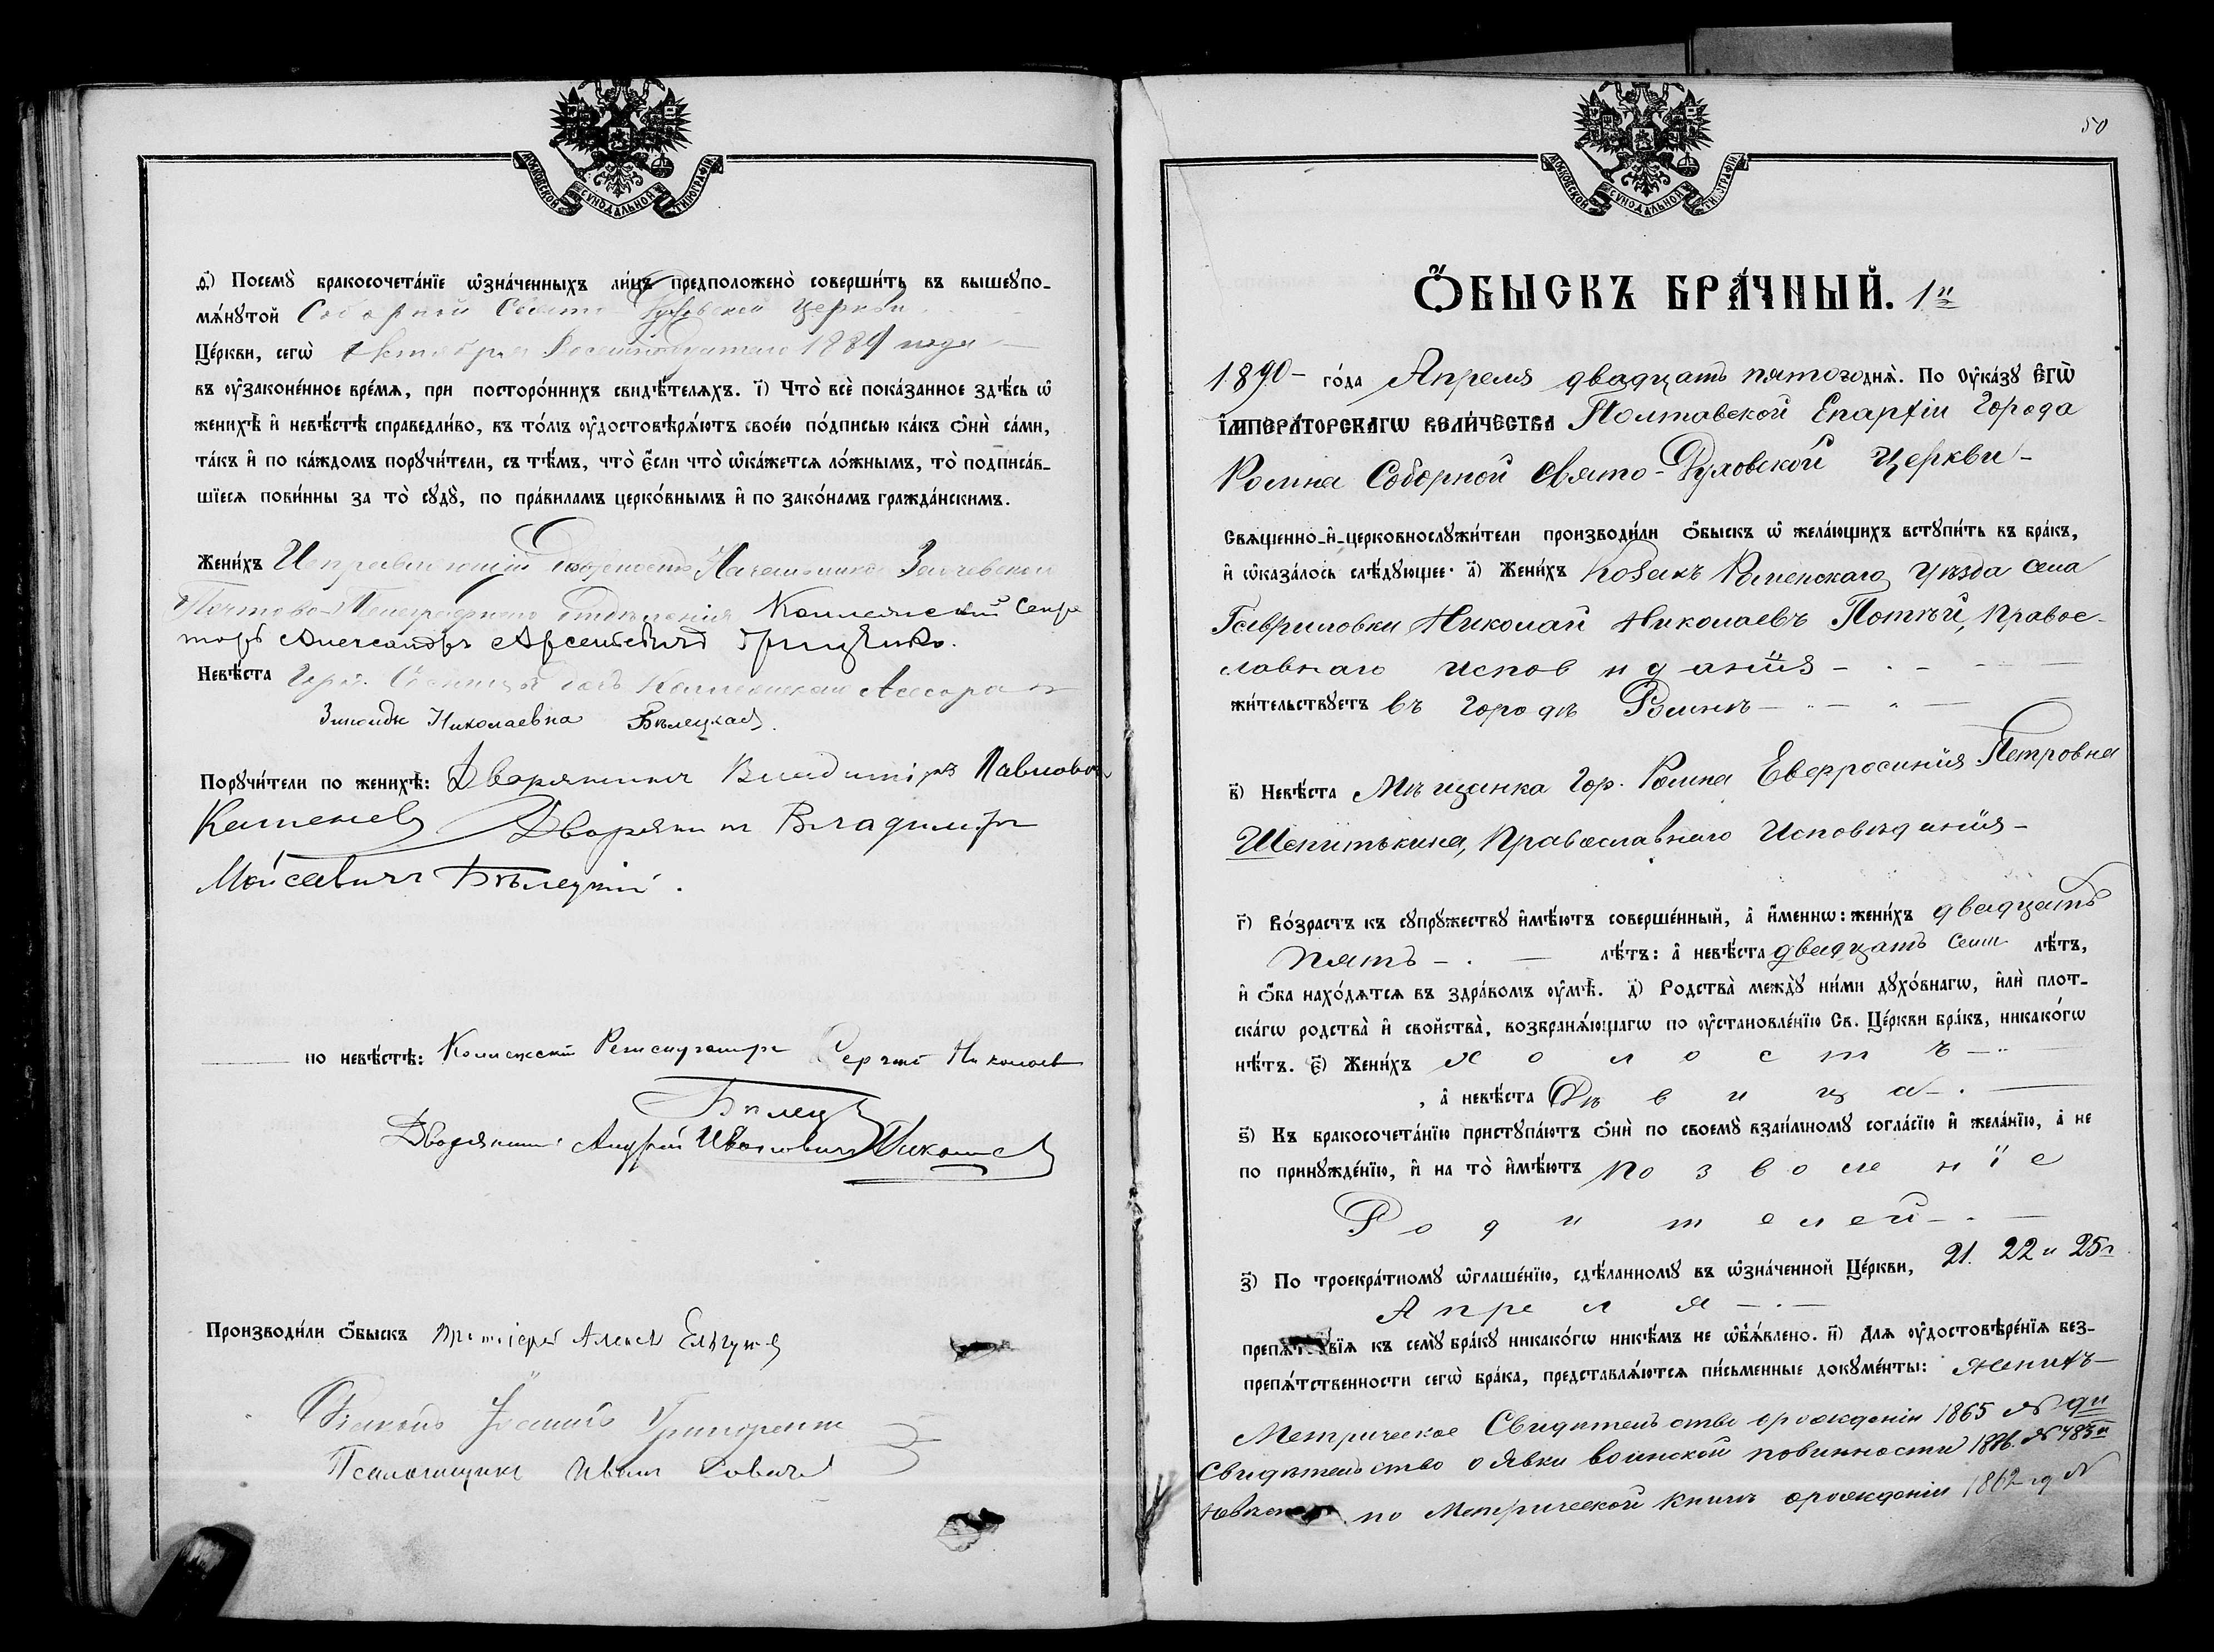 МОСКОВСКОЙ СѴНОДАЛЬНОЙ ТИПОГРАФІИ
д҃) Посемꙋ̀ бракосочета́нїе ѡ҆зна́ченныхъ ли́цъ предположено̀ соверши́ть въ вышеꙋпо-
мѧ́нꙋтой Соборной Свято-Духовской Церкви
Це́ркви, сегѡ̀ Октября Восемнадцатаго 1889 года
въ ᲂу҆законе́нное вре́мѧ, при посторо́ннихъ свидѣ́телѧхъ. і҃) Что̀ всѐ пока́занное здѣ́сь ѡ҆
женихѣ̀ и҆ невѣ́стѣ справедли́во, въ то́мъ ᲂу҆достовѣрѧ́ютъ свое́ю по́дписью ка́къ ѻ҆нѝ са́ми,
та́къ и҆ по ка́ждомъ порꙋчи́тели, съ тѣ́мъ, что̀ є҆́сли что̀ ѡ҆ка́жетсѧ ло́жнымъ, то̀ подписа́в-
шїесѧ пови́нны за то̀ сꙋдꙋ̀, по пра́виламъ церко́внымъ и҆ по зако́намъ гражда́нскимъ.
Жени́хъ Исправляющій Должность Начальника
Почтово-Телеграфнаго Отдѣленія Коллежскій Секре
тарь Александръ Арсеніевичъ Гриценко.
Невѣ́ста Коллежскаго Асесора
Зинаида Николаевна Бѣлецкая.
Порꙋчи́тели по женихѣ̀: Дворянинъ Владиміръ Павловъ
Каменевъ Дворянинъ Владиміръ
Моисеевичъ Бѣлецкій.
по невѣ́стѣ: Коллежскій Регистраторъ Сергѣй Николаев
Бѣлец
Дворянинъ Андрей Ивановичъ
Производи́ли ѻ҆́быскъ протоіерей Алексѣй
Діаконъ Іоаннъ Григоренко
Псаломщикъ Иванъ
50
МОСКОВСКОЙ СѴНОДАЛЬНОЙ ТИПОГРАФІИ
Ѻ҆́БЫСКЪ БРА́ЧНЫЙ. 1й
1890 – го́да Апреля двадцать пятого днѧ̀. По ᲂу҆ка́зꙋ Є҆гѡ̀
І҆мпера́торскагѡ вели́чества Полтавской Епархіи Города
Ромна Соборной Свято-Духовской Церкви –
Свѧще́нно-и҆-церковнослꙋжи́тели производи́ли ѻ҆́быскъ ѡ҆ жела́ющихъ встꙋпи́ть въ бра́къ,
и҆ ѡ҆каза́лось слѣ́дꙋющее: а҃) Жени́хъ Козакъ Роменскаго Уѣзда села
Гавриловки Николай Николаевъ Потѣй, Правос-
лавнаго исповиданія –
жи́тельствꙋетъ въ Городѣ Ромнѣ –
в҃) Невѣ́ста Мѣщанка Гор. Ромна Евфросинія Петровна
Шепитькина, Православнаго Исповѣданія –
г҃) Во́зрастъ къ сꙋпрꙋ́жествꙋ и҆мѣ́ютъ соверше́нный, а҆ и҆́меннѡ: жени́хъ двадцать
пять – лѣ́тъ: а҆ невѣ́ста двадцать семь лѣ́тъ,
и҆ ѻ҆́ба нахо́дѧтсѧ въ здра́вомъ ᲂу҆мѣ̀. д҃) Родства̀ междꙋ̀ ни́ми дꙋхо́внагѡ, и҆лѝ плот-
ска́гѡ родства̀ и҆ сво́йства, возбранѧ́ющагѡ по ᲂу҆становле́нїю Св. Це́ркви бра́къ, никако́гѡ
нѣ́тъ. є҃) Жени́хъ Холостъ –
, а҆ невѣ́ста Дѣвица –
ѕ҃) Къ бракосочета́нїю пристꙋпа́ютъ ѻ҆нѝ по своемꙋ̀ взаи́мномꙋ согла́сїю и҆ жела́нїю, а҆ не
по принꙋжде́нїю, и҆ на то̀ и҆мѣ́ютъ позволеніе
Родителей –
з҃) По троекра́тномꙋ ѡ҆глаше́нїю, сдѣ́ланномꙋ въ ѡ҆зна́ченной Це́ркви, 21. 22 и 25го
Апреля –
препѧ́т вїѧ къ семꙋ̀ бра́кꙋ никако́гѡ никѣ́мъ не ѡ҆б̾ѧ́влено. и҃) Длѧ ᲂу҆достовѣре́нїѧ без-
препѧ́тственности сегѡ̀ бра́ка, представлѧ́ютсѧ пи́сьменные докꙋме́нты: Женихъ –
Метрическое Свидѣтельство о рожденіи 1865 №
Свидѣтельство о явки воинской повинности 1886. №
Невѣста по Метрической книгѣ о рожденіи 1862 год №